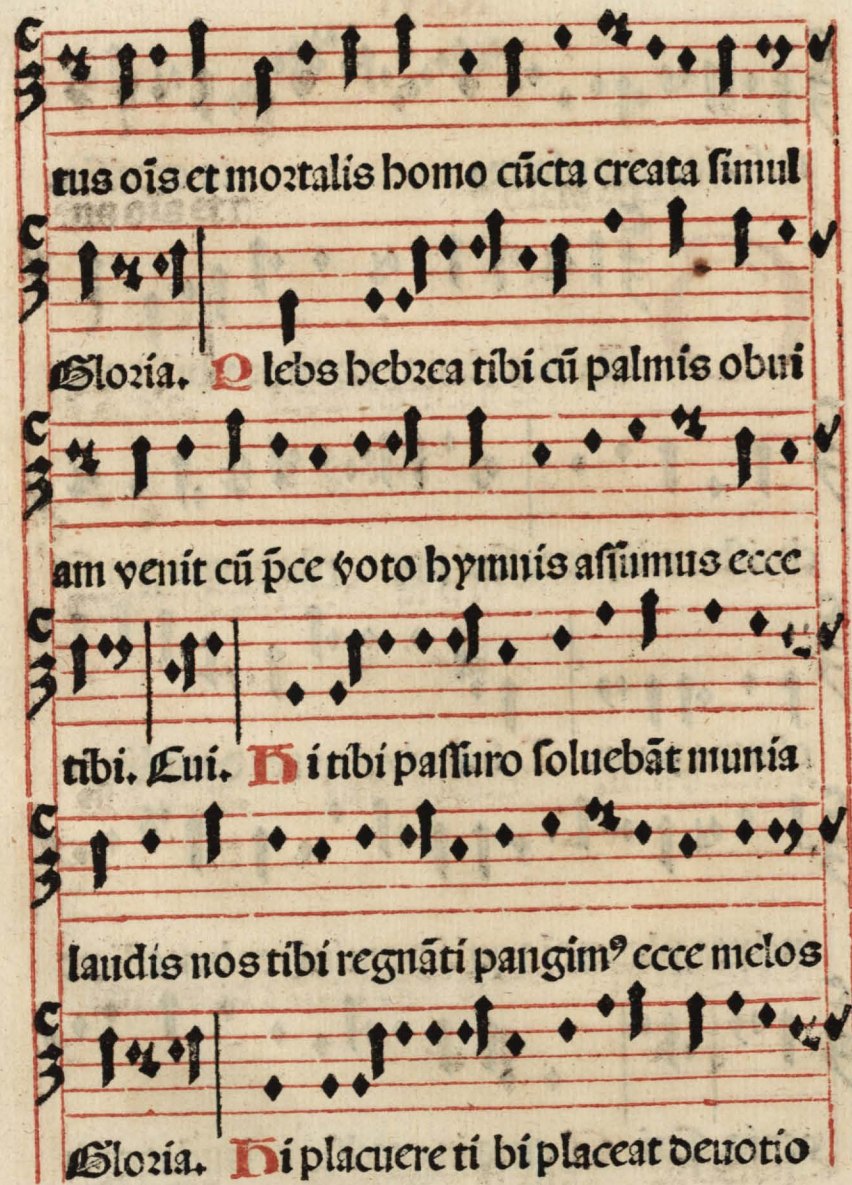 tus oı̃s et moꝛtalis homo cũcta creata ſimul
Gloꝛia. P lebs hebꝛea tibi cũ palmis obui
am venit cũ p̃ce voto hymnis aſſumus ecce
tibi. Cui. H i tibi paſſuro ſoluebãt munia
laudis nos tibi regnãti pangimꝰ ecce melos
Gloꝛia. Hi placuere ti bi placeat deuotio